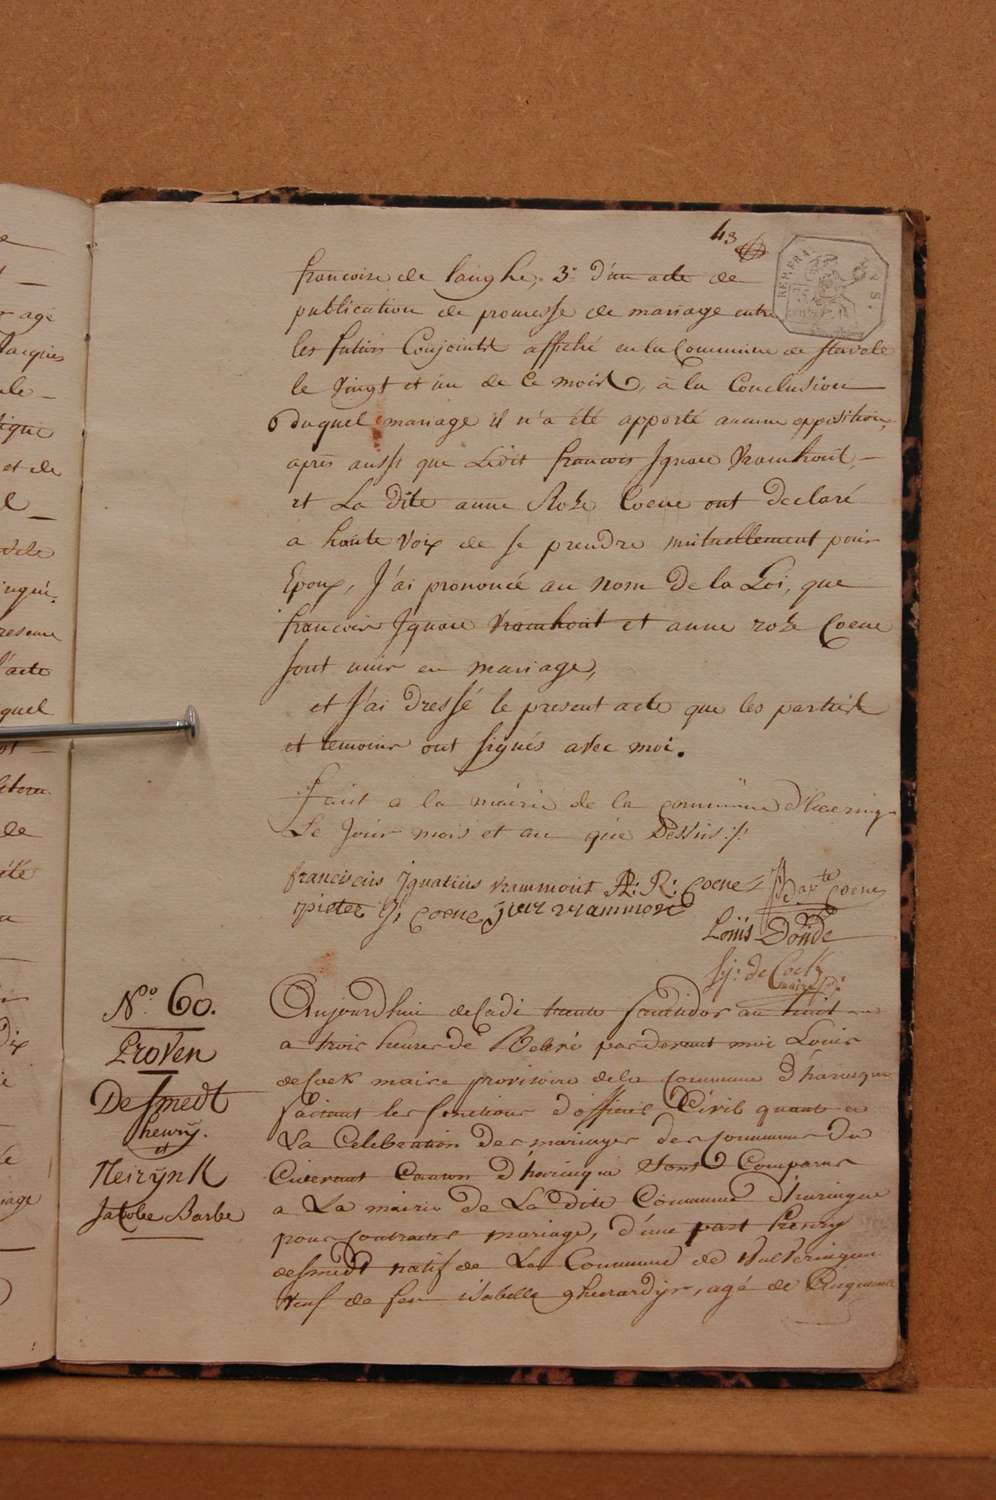 43
REP. FRA.
francoise de langhe. 3.° d'un acte de
publication de promesse de mariage entre
les futurs Conjoints affiché en la Commune de Stavele
le Vingt et un de Ce mois, a la Conclusion
duquel mariage il n'a été apporté aucune opposition,
apres aussi que Ledit francois Ignace Vramhout,
et La dite anne Roze Coene ont declaré
a haute Voix de se prendre mutuellement pour
Epoux, J'ai prononcé au nom De la Loi, que
francois Ignace Vramhout et anne roze Coene
sont unis en mariage,
et J'ai Dressé le present acte que les parties
et temoins ont signés avec moi.
fait a la mairie de la commune d'haeringe
Le Jour mois et an que Dessus ./.
franciscus Ignatius vrammout A: R: Coene
pieter J, Coene
Louis Donde
de Cock
N.° 60.
Proven
De Smedt
henry.
et
Neirynck
Jacobe Barbe
Aujourdhui decadi trente fructidor an huit
a trois heures de Relevé pardevant moi Louis
deCock maire provisoire de la Commune d'haringue
faisant les fonctions d'officier Civil quant a
La Celebration des mariages des communes du
Ciderant Canton d'haringue sont Comparus
a La mairie de La dite Commune d'haringue
pour contracter mariage, d'une part henry
desmedt natif de La Commune de Wulveringem
veuf de feu isabelle gheerardyn, agé de Cinquante